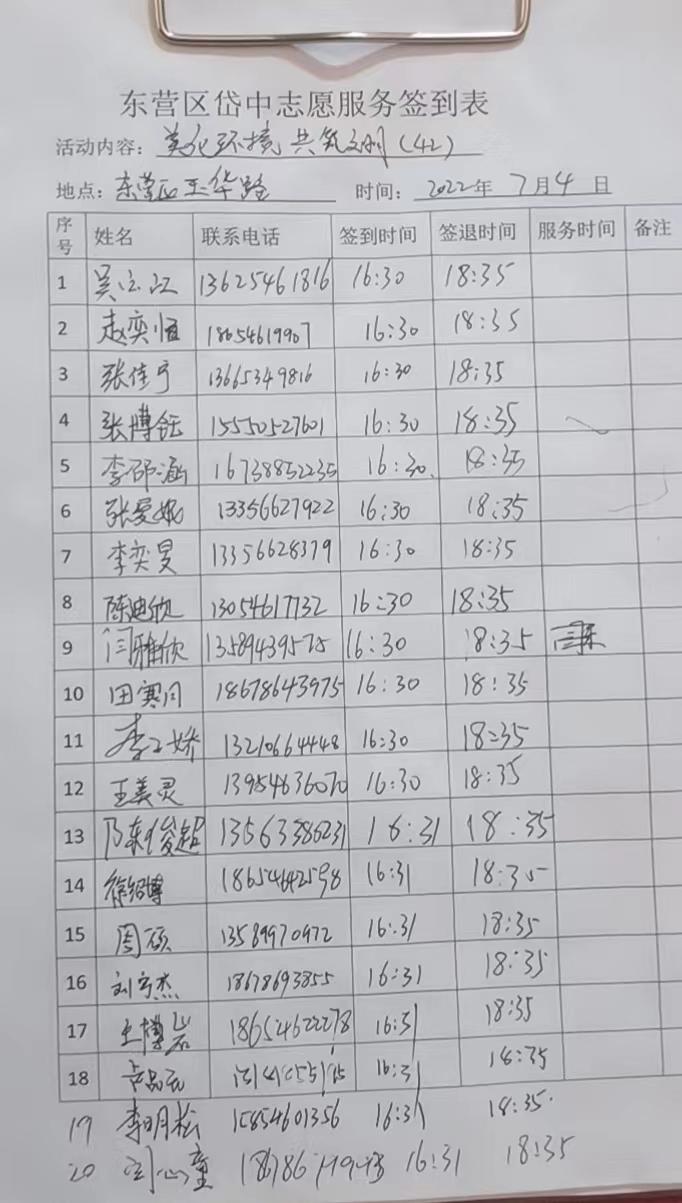 东营区岱中志愿服务签到表
活动内容： 美化环境 共筑文明（42）
地点： 东营区玉华路 时间： 2022年 7月4日
序号 姓名 联系电话 签到时间 签退时间 服务时间 备注
1 吴 江 13625461816 16:30 18:35
2 赵奕恒 16:30 18:35
3 张佳 13665349816 16:30 18:35
4 张博钰 15550527601 16:30 18:35
5 李邵涵 16738852235 16:30 18:35
6 张爱妮 13356627922 16:30 18:35
7 李奕旻 13356628379 16:30 18:35
8 陈迪欣 16:30 18:35
9 闫雅欣 13589439575 16:30 18:35
10 田寒月 18678643975 16:30 18:35
11 李 娇 13210664448 16:30 18:35
12 王美灵 13954636070 16:30 18:35
13 陈俊超 13563386231 16:31 18:35
14 徐绍博 18654642598 16:31 18:35
15 周硕 13589970972 16:31 18:35
16 刘 杰 18678693855 16:31 18:35
17 王博岩 18654622278 16:31 18:35
18 16:31 18:35
19 李明松 15854601356 16:31 18:35
20 刘心童 16:31 18:35